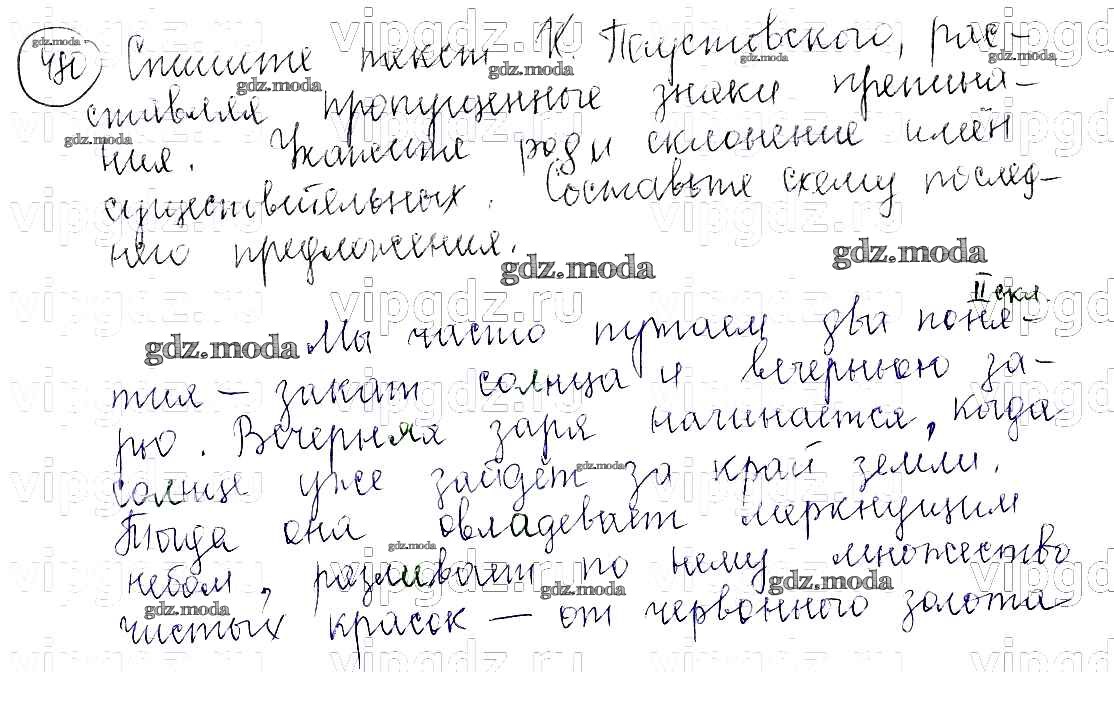 480 Спишите текст К Паустовского, рас-
ставляя пропущенные знаки препина-
ния. Укажите род и склонение имён
существительных. Составьте схему послед-
него предложения.
II скл.
Мы часто путаем два поня-
тия — закат солнца и вечернюю за-
рю. Вечерняя заря начинается, когда
солнце уже зайдёт за край земли.
Тогда она овладевает меркнущим
небом, разливает по нему множество
чистых красок — от червонного золота
gdz.moda
vipgdz.ru